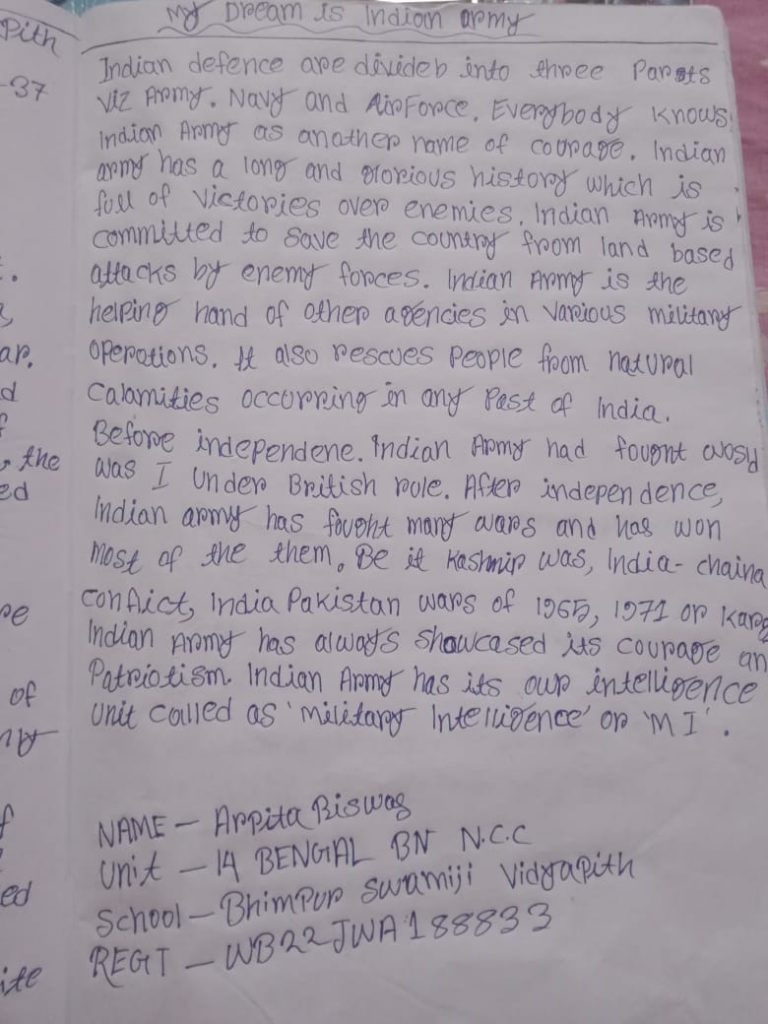 Pith
-37
My Dream is Indian army
Indian defence are divideb into three Parots
viz Army. Navy and AirForce. Everybody knows
Indian Army as another name of courage. Indian
army has a long and glorious history which is
full of victories over enemies. Indian Army is
committed to save the country from land based
attacks by enemy forces. Indian Army is the
helping hand of other agencies in various military
operations. It also rescues people from natural
calamities occurring in any Past of India.
Before independene. Indian Army had fought
was I under British role. After independence,
Indian army has fought many wars and has won
most of the them. Be it Kashmir was, India- chaina
conflict, India Pakistan wars of 1965, 1971 or Karg
Indian Army has always showcased its courage an
Patriotism. Indian Army has its our intelligence
unit called as 'military Intelligence' or 'M I'.
NAME - Arpita Biswas
Unit - 14 BENGAL BN N.C.C
School - Bhimpur Swamiji Vidyapith
REGT - WB22JWA188833
ar.
d
, the
ed
of
ed
ite